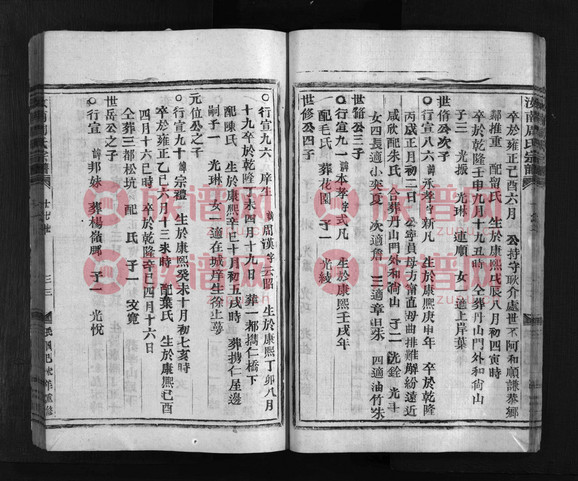 汝南周氏宗譜
卒於雍正己酉六月 公持守耿介處世不阿和順謙恭鄉
鄰推重 配留氏 生於康熙戊辰八月初四寅時
卒於乾隆壬申九月十九丑時 仝葬丹山門外和尚山
子三 光振 光琳 連順 女一 適上岸葉
世偹公次子
○行宣八六 諱永孝字新凡 生於康熙庚申年 卒於乾隆
丙戌正月初二日 公寧員毋方當直毋曲排難解紛遠近
咸欣配朱氏 合葬丹山門外和尚山 子二 洸銓 光斗
女四長適小爽夏 次適詹 三適章旦朱 四適油竹朱
世簵公三子
○行宣九一 諱本孝字式凡 生於康熙壬戌年
一配毛氏 葬花園 子一 光綾
世修公四子
○行宣九六 庠生 諱周漢字云昭 生於康熙丁卯八月
十九卒於乾隆丁未四月十九日 葬一都攜仁橋下
配陳氏 生於康熙辛巳十月初五戌時 葬攜仁屋邊
嗣子一 光琳 女一 適在城庠生徐上夢
元位公之子
○行宣九十 諱宗禮 生於康熙癸未十月初七亥時
卒於雍正乙巳六月十三未時 配葉氏 生於康熙己酉
四月十六巳時 卒於乾隆辛巳四月十六日
仝葬三都松坑 配 氏 子一 文寬
世岳公之子
○行宣 諱邦妹 葬楊嶺脚 子一 光悅
汝南周氏宗譜